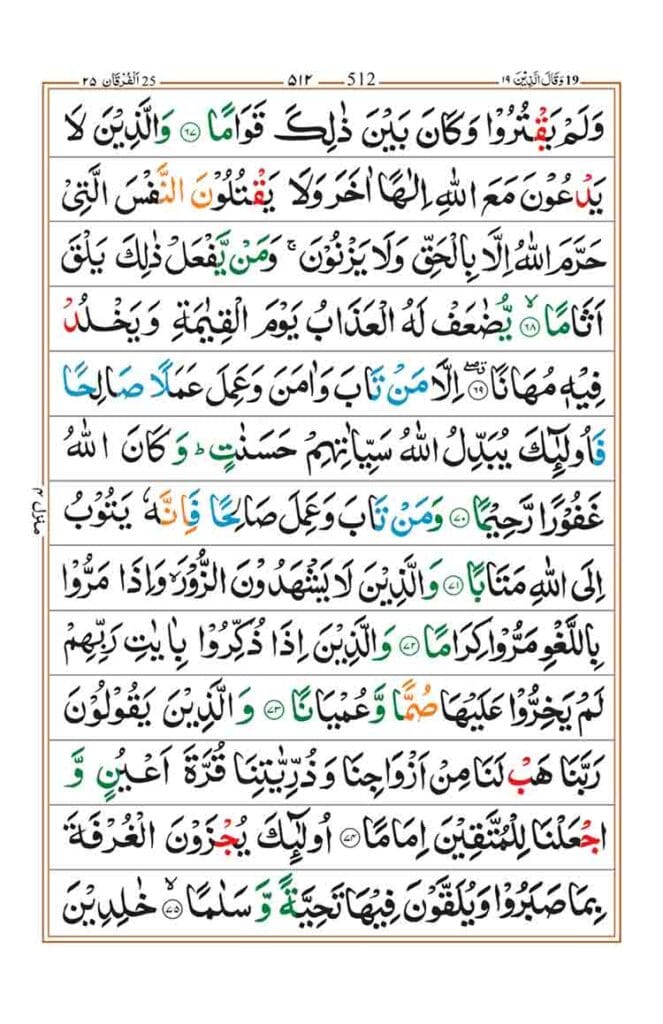 وَقَالَ الَّذِيْنَ ١٩ 19 512 ٥١٢ اَلْفُرْقَان ٢٥ 25
وَلَمْ يَقْتُرُوْا وَكَانَ بَيْنَ ذٰلِكَ قَوَامًا ﴿٦٧﴾ وَالَّذِيْنَ لَا
يَدْعُوْنَ مَعَ اللّٰهِ اِلٰهًا اٰخَرَ وَلَا يَقْتُلُوْنَ النَّفْسَ الَّتِيْ
حَرَّمَ اللّٰهُ اِلَّا بِالْحَقِّ وَلَا يَزْنُوْنَ ۚ وَمَنْ يَّفْعَلْ ذٰلِكَ يَلْقَ
اَثَامًا ﴿٦٨﴾ۙ يُّضٰعَفْ لَهُ الْعَذَابُ يَوْمَ الْقِيٰمَةِ وَيَخْلُدْ
فِيْهٖ مُهَانًا ﴿٦٩﴾ اِلَّا مَنْ تَابَ وَاٰمَنَ وَعَمِلَ عَمَلًا صَالِحًا
فَاُولٰٓئِكَ يُبَدِّلُ اللّٰهُ سَيِّاٰتِهِمْ حَسَنٰتٍ ؕ وَ كَانَ اللّٰهُ
غَفُوْرًا رَّحِيْمًا ﴿٧٠﴾ وَمَنْ تَابَ وَعَمِلَ صَالِحًا فَاِنَّهٗ يَتُوْبُ
اِلَى اللّٰهِ مَتَابًا ﴿٧١﴾ وَالَّذِيْنَ لَا يَشْهَدُوْنَ الزُّوْرَ ۙ وَاِذَا مَرُّوْا
بِاللَّغْوِ مَرُّوْا كِرَامًا ﴿٧٢﴾ وَالَّذِيْنَ اِذَا ذُكِّرُوْا بِاٰيٰتِ رَبِّهِمْ
لَمْ يَخِرُّوْا عَلَيْهَا صُمًّا وَّعُمْيَانًا ﴿٧٣﴾ وَالَّذِيْنَ يَقُوْلُوْنَ
رَبَّنَا هَبْ لَنَا مِنْ اَزْوَاجِنَا وَذُرِّيّٰتِنَا قُرَّةَ اَعْيُنٍ وَّ
اجْعَلْنَا لِلْمُتَّقِيْنَ اِمَامًا ﴿٧٤﴾ اُولٰٓئِكَ يُجْزَوْنَ الْغُرْفَةَ
بِمَا صَبَرُوْا وَيُلَقَّوْنَ فِيْهَا تَحِيَّةً وَّ سَلٰمًا ﴿٧٥﴾ۙ خٰلِدِيْنَ
منزل ٤